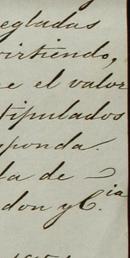 egladas
virtiendo,
e el valor
tipulados
ponda.
la de
don y C.ia